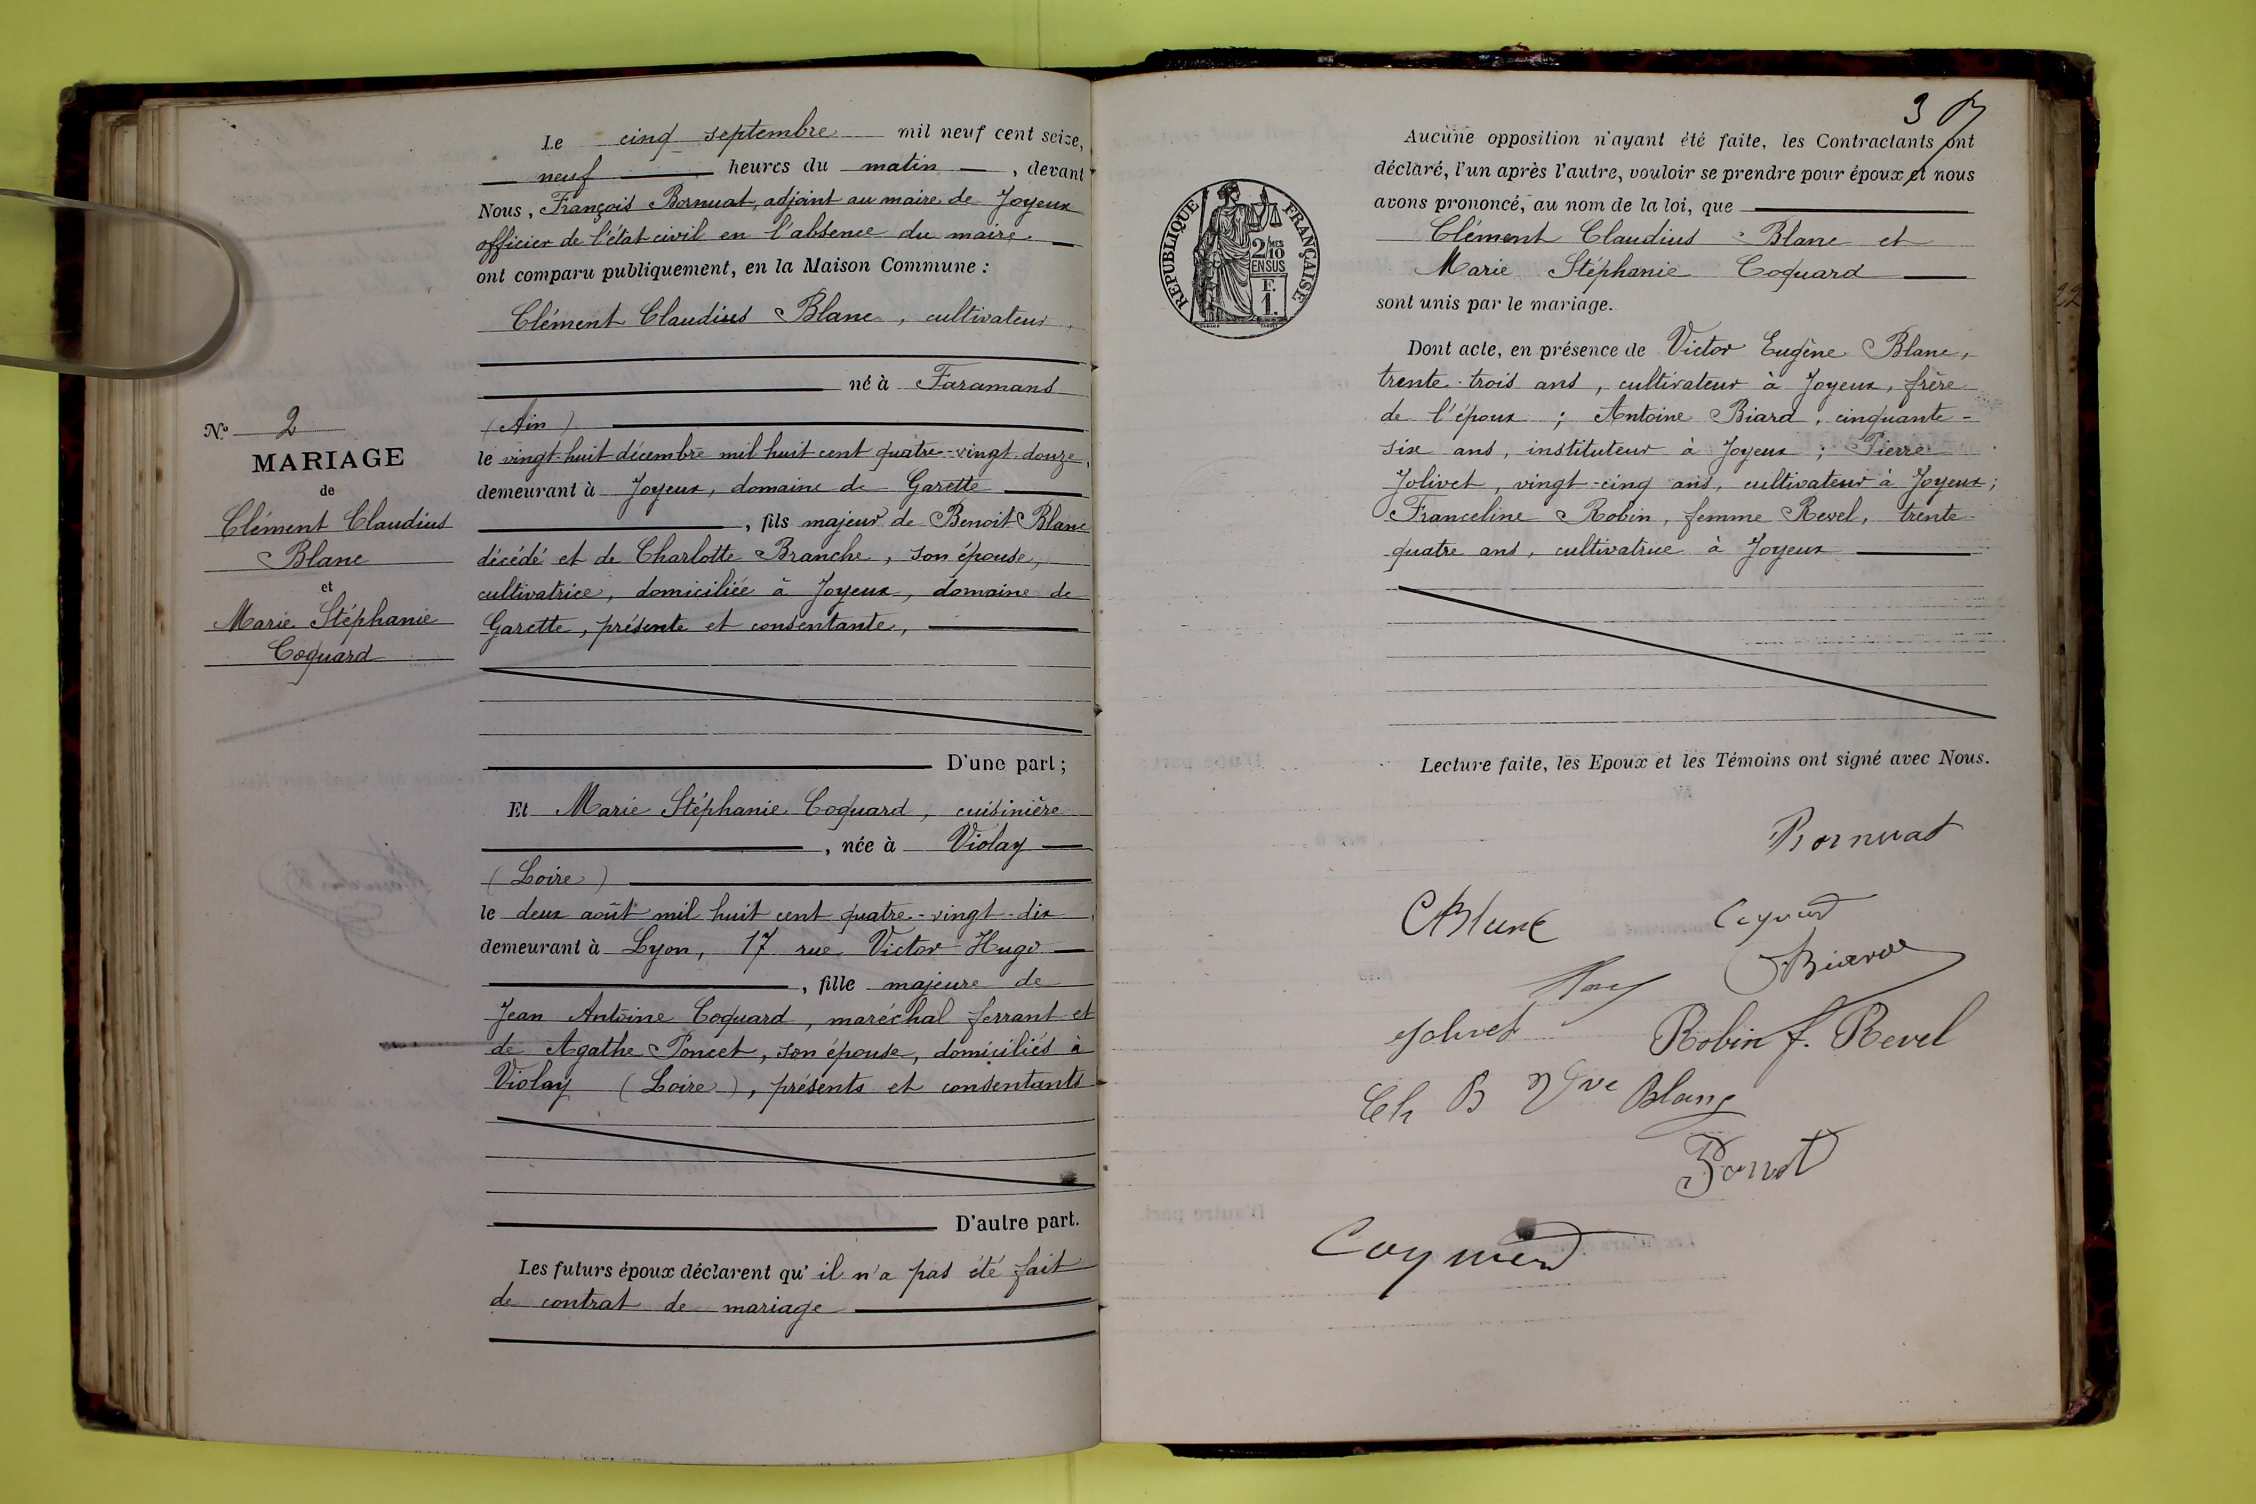 N° 2
MARIAGE
de
Clément Claudius
Blanc
et
Marie Stéphanie
Coquard
Le cinq septembre mil neuf cent seize,
neuf heures du matin, devant
Nous, François Bornuat, adjoint au maire de Joyeux
officier de l'état civil en l'absence du maire.
ont comparu publiquement, en la Maison Commune :
Clément Claudius Blanc, cultivateur,
né à Faramans
(Ain)
le vingt-huit décembre mil huit cent quatre-vingt-douze,
demeurant à Joyeux, domaine de Garette
, fils majeur de Benoit Blanc
décédé et de Charlotte Branche, son épouse,
cultivatrice, domiciliée à Joyeux, domaine de
Garette, présente et consentante,
D'une part ;
Et Marie Stéphanie Coquard, cuisinière
, née à Violay
(Loire)
le deux août mil huit cent quatre-vingt-dix,
demeurant à Lyon, 17 rue Victor Hugo
, fille majeure de
Jean Antoine Coquard, maréchal ferrant et
de Agathe Poncet, son épouse, domiciliés à
Violay (Loire), présents et consentants
D'autre part.
Les futurs époux déclarent qu'il n'a pas été fait
de contrat de mariage
3
Aucune opposition n'ayant été faite, les Contractants ont
déclaré, l'un après l'autre, vouloir se prendre pour époux et nous
avons prononcé, au nom de la loi, que
Clément Claudius Blanc et
Marie Stéphanie Coquard
sont unis par le mariage.
RÉPUBLIQUE FRANÇAISE
2/10
EN SUS
F.
1.
Dont acte, en présence de Victor Eugène Blanc,
trente-trois ans, cultivateur à Joyeux, frère
de l'époux ; Antoine Biard, cinquante-
six ans, instituteur à Joyeux ; Pierre
Jolivet, vingt-cinq ans, cultivateur à Joyeux ;
Franceline Robin, femme Revel, trente-
quatre ans, cultivatrice à Joyeux
Lecture faite, les Epoux et les Témoins ont signé avec Nous.
Bornuat
C Blanc Coquard
Biard
Jolivet Robin f. Revel
Ch B Vve Blanc
Poncet
Coquard